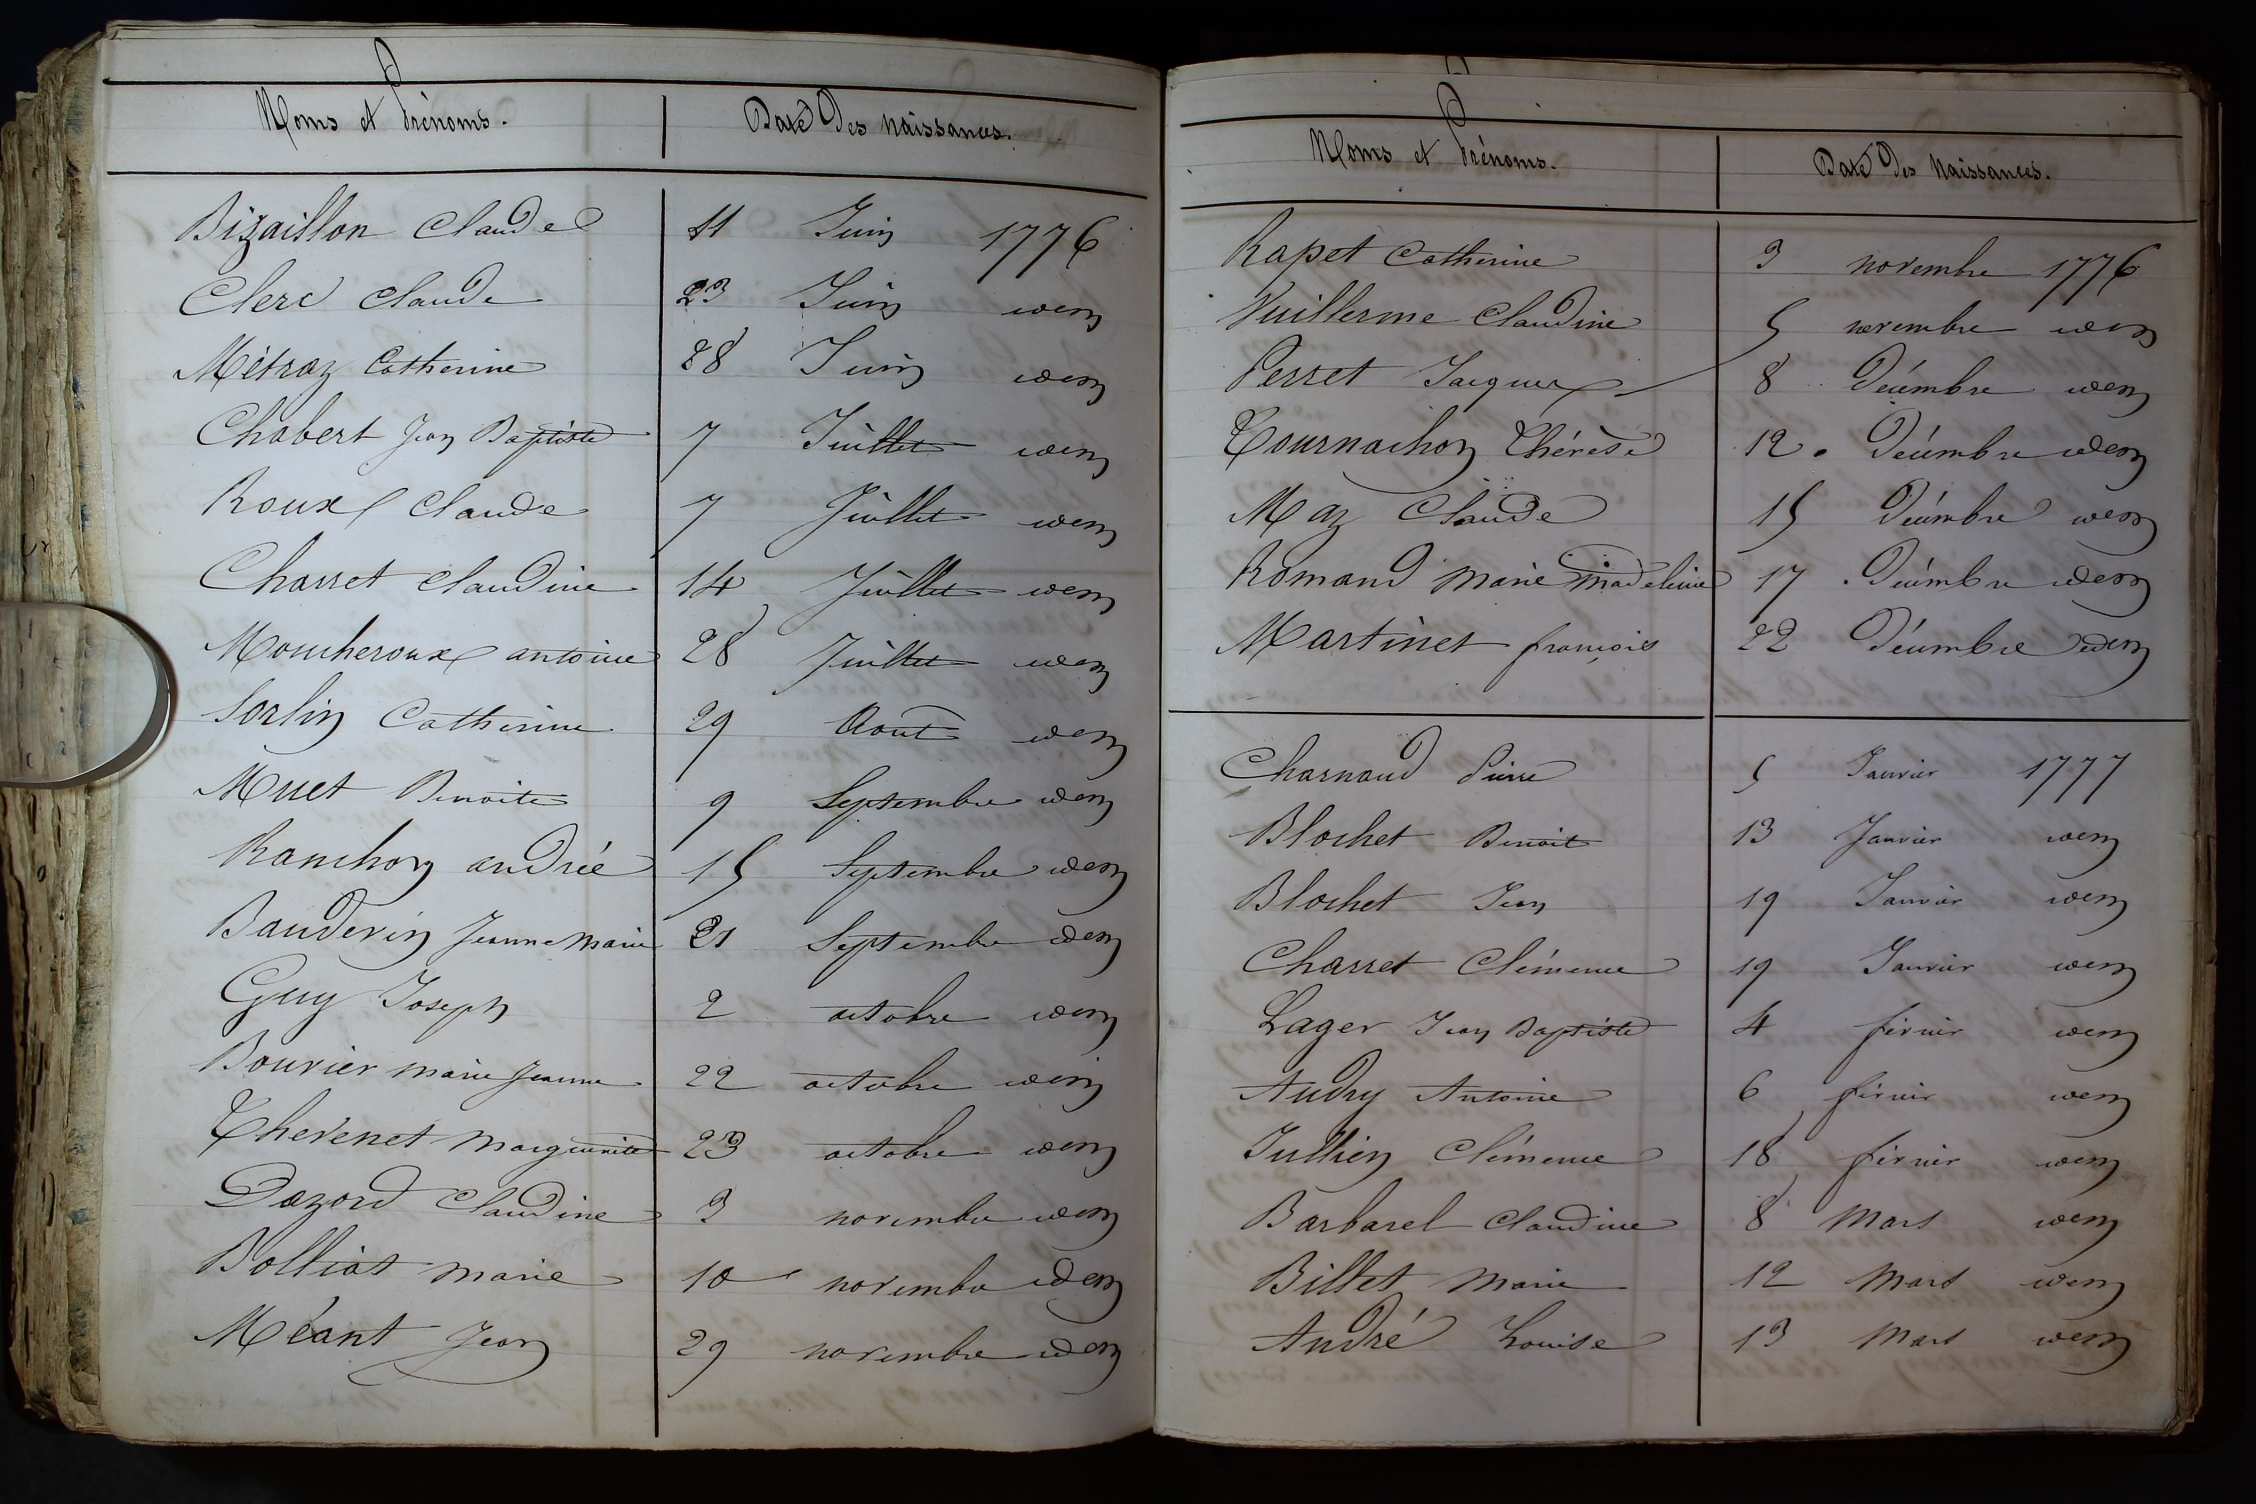 Noms et Prénoms. Date des Naissances.
Bizaillon Claude 11 Juin 1776
Clerc Claude 23 Juin idem
Métraz Catherine 28 Juin idem
Chabert Jean Baptiste 7 Juillet idem
Roux Claude 7 Juillet idem
Charret Claudine 14 Juillet idem
Moucheroux antoine 28 Juillet idem
Sorlin Catherine 29 Aout idem
Muet Benoite 9 Septembre idem
Ranchon andrée 15 Septembre idem
Bauderin Jeanne Marie 21 Septembre idem
Guy Joseph 2 octobre idem
Bouvier marie Jeanne 22 octobre idem
Thevenet Marguerite 23 octobre idem
Dazord Claudine 3 novembre idem
Bolliat Marie 10 novembre idem
Méant Jean 29 novembre idem
Noms et Prénoms. Date des Naissances.
Rapet Catherine 3 novembre 1776
Vuillerme Claudine 5 novembre idem
Perret Jacques 8 Décembre idem
Tournachon Thérèse 12 Décembre idem
Maz Claude 15 Décembre idem
Romand Marie Madeleine 17 Décembre idem
Martinet françois 22 Décembre idem
Charnaud Pierre 5 Janvier 1777
Blochet Benoit 13 Janvier idem
Blochet Jean 19 Janvier idem
Charret Clémence 19 Janvier idem
Lager Jean Baptiste 4 février idem
Audry Antoine 6 février idem
Jullien Clémence 18 février idem
Barbarel Claudine 8 Mars idem
Billet Marie 12 Mars idem
André Louise 13 Mars idem